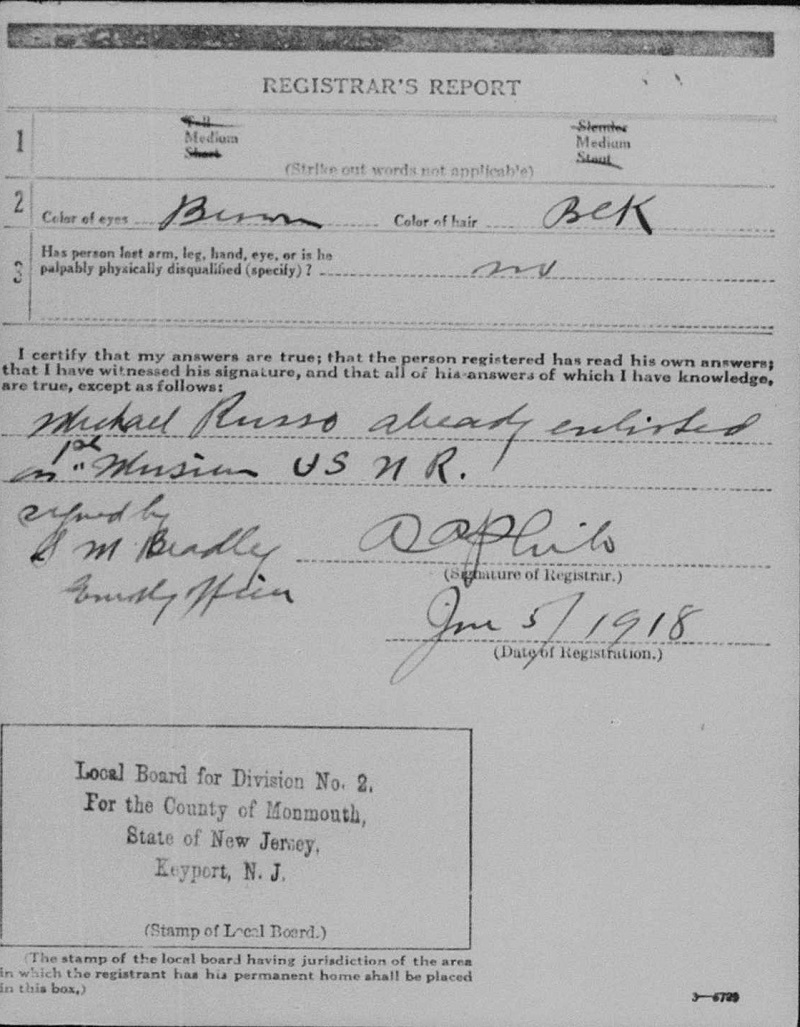 REGISTRAR'S REPORT
1
Tall
Medium
Short
Slender
Medium
Stout
(Strike out words not applicable)
2 Color of eyes Brown Color of hair BlK
3 Has person lost arm, leg, hand, eye, or is he
palpably physically disqualified (specify)? no
I certify that my answers are true; that the person registered has read his own answers;
that I have witnessed his signature, and that all of his answers of which I have knowledge,
are true, except as follows:
Michael Russo already enlisted
1st Musician U S N R.
signed by
S M Bradley
(Signature of Registrar.)
June 5/1918
(Date of Registration.)
Local Board for Division No. 2.
For the County of Monmouth,
State of New Jersey,
Keyport, N. J.
(Stamp of Local Board.)
(The stamp of the local board having jurisdiction of the area
in which the registrant has his permanent home shall be placed
in this box.)
3—6729